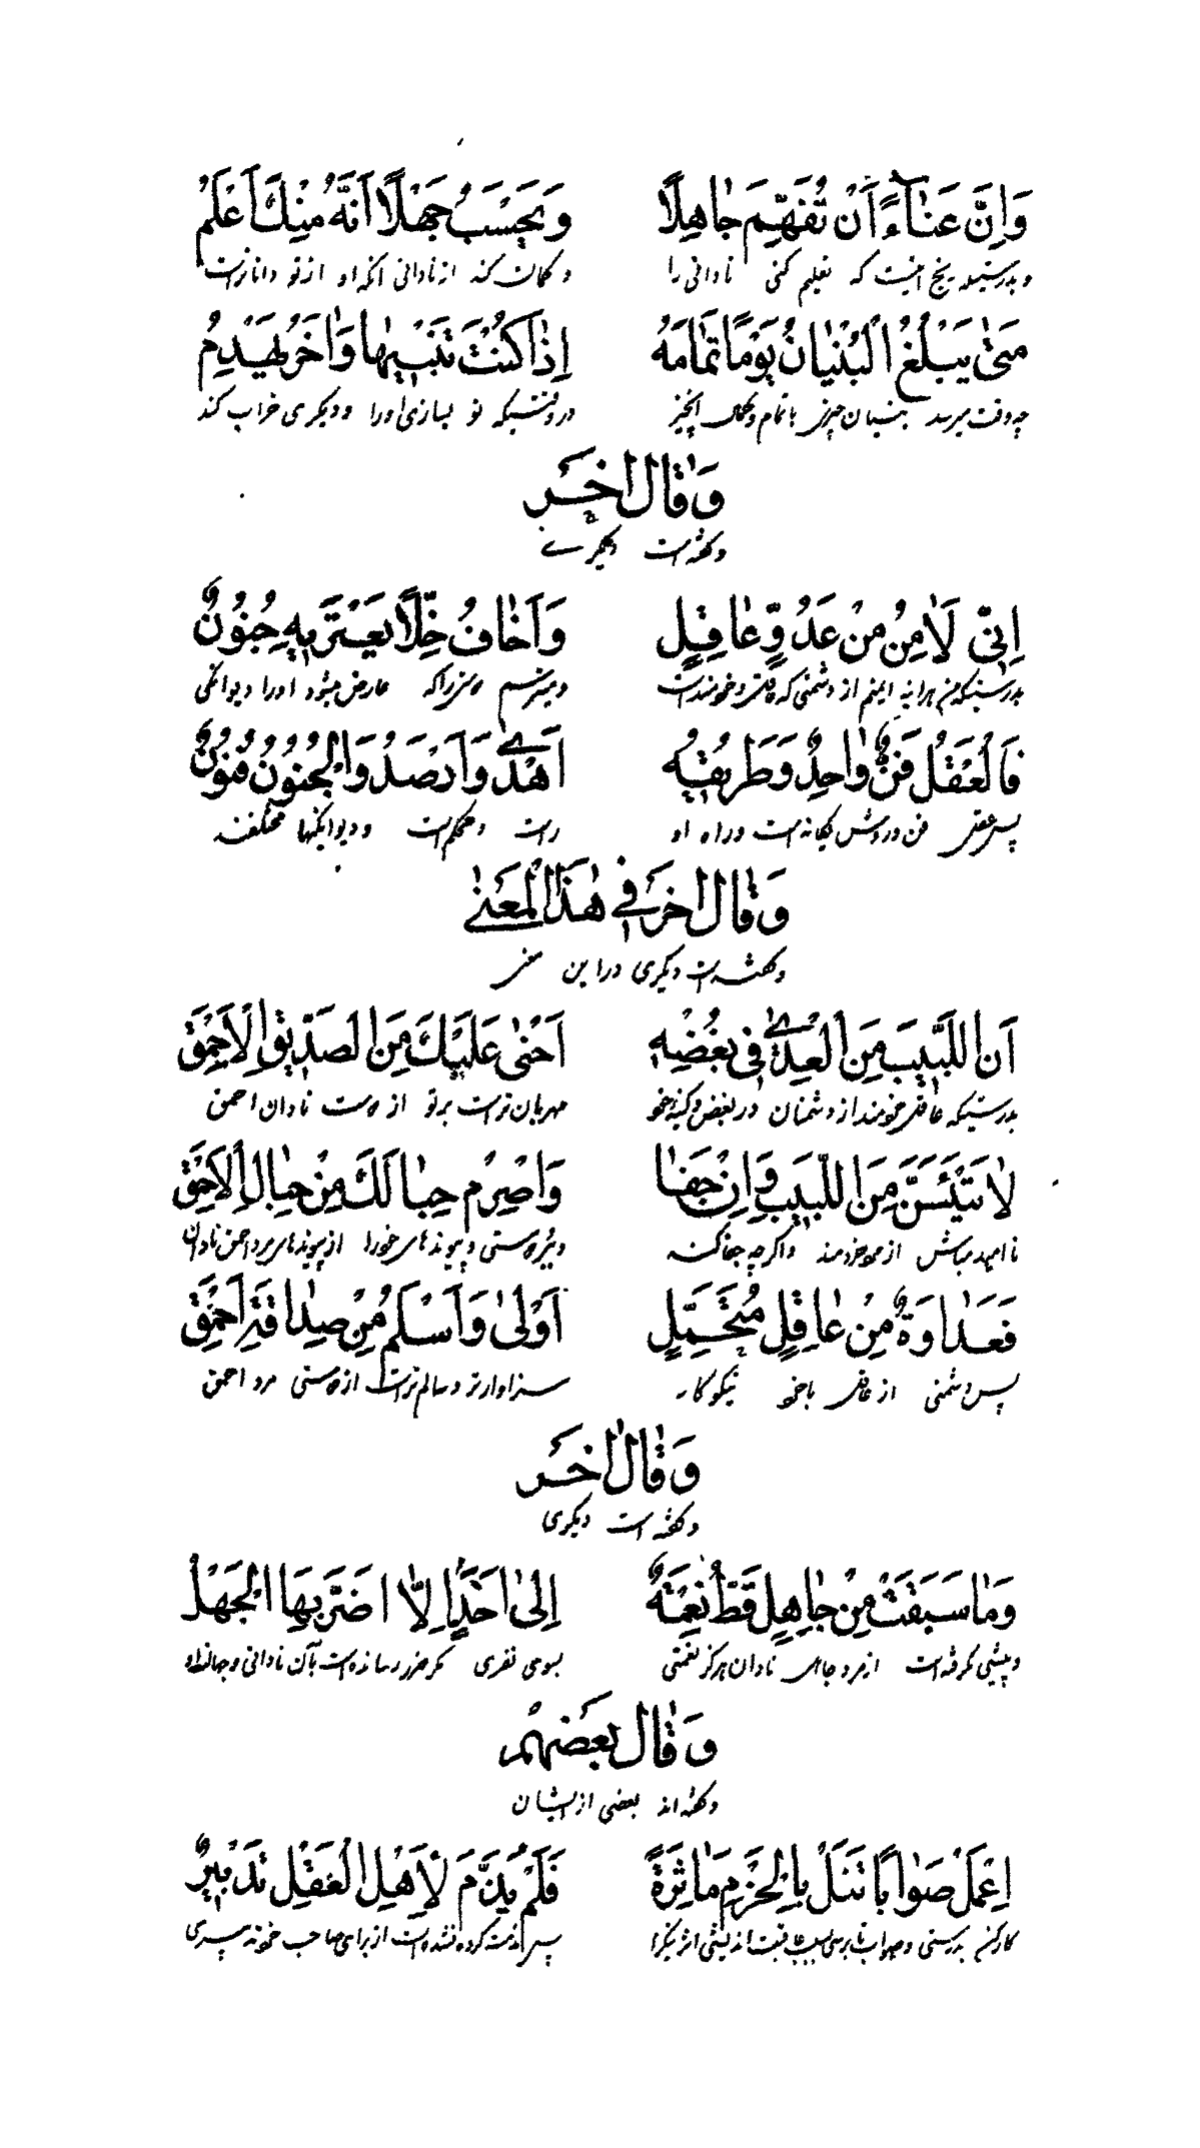 وَاِنَّ عَنٰاءً اَنْ تُفَهِّمَ جٰاهِلًا وَيَحْسَبُ جَهْلًا اَنَّهُ مِنْكَ اَعْلَمُ
و بدرستیکه رنج اینست که تعلیم کنی نادانی را و گمان کند از نادانی آنکه او از تو داناتر است
مَتىٰ يَبْلُغُ الْبُنْيٰانُ يَوْمًا تَمٰامَهُ اِذٰا كُنْتَ تَبْنيهٰا وَاٰخَرُ يَهْدِمُ
چه وقت میرسد بنیان چیزی باتمام و کمال در وقتیکه تو بسازی او را و دیگری خراب کند
وَقٰالَ اٰخَر
و گفته است دیگرے
اِنّي لَاٰمِنُ مِنْ عَدُوٍّ عٰاقِلٍ وَاَخٰافُ خِلًّا يَعْتَريهِ جُنُونٌ
بدرستیکه من هرآینه ایمنم از دشمنی که عاقل و خردمند است و میترسم را که عارض میشود او را دیوانگی
فَالْعَقْلُ فَنٌّ وٰاحِدٌ وَطَريقُهُ اَهْدىٰ وَاَرْصَدُ وَالْجُنُونُ فُنُونٌ
پس عقل فن و روش یگانه است و راه او راست و محکم است و دیوانگیها مختلفند
وَقٰالَ اٰخَر في هٰذَا الْمَعْنىٰ
و گفته است دیگری در این معنی
اَنَّ اللَّبيبَ مِنَ الْعِدىٰ في بُغْضِهِ اَحْنىٰ عَلَيْكَ مِنَ الصَّديقِ الْاَحْمَقِ
بدرستیکه عاقل خردمند از دشمنان در بغض و کینه خود مهربان تر است بر تو از دوست نادان احمق
لٰا تَيْئَسَنَّ مِنَ اللَّبيبِ وَاِنْ جَفٰا وَاصْرِمْ حِبٰالَكَ مِنْ حِبٰالِ الْاَحْمَقِ
ناامید مباش از مرد خردمند و اگر چه جفا کند و ببُر دوستی و پیوندهای خود را از پیوندهای مرد احمق نادان
فَعَدٰاوَةٌ مِنْ عٰاقِلٍ مُتَجَمِّلٍ اَوْلىٰ وَاَسْلَمُ مِنْ صِدٰاقَةِ اَحْمَقِ
پس دشمنی از عاقل با خرد نیکوکار سزاوارتر و سالم تر است از دوستی مرد احمق
وَقٰالَ اٰخَر
و گفته است دیگری
وَمٰا سَبَقَتْ مِنْ جٰاهِلٍ قَطُّ نِعْمَةٌ اِلىٰ اَحَدٍ اِلّٰا اَضَرَّ بِهَا الْجَهْلُ
و پیشی نگرفته است از مرد جاهل نادان هرگز نعمتی بسوی نفری مگر ضرر رسانده است بآن نادانی و جهالت او
وَقٰالَ بَعْضُهُمْ
و گفته اند بعضی از ایشان
اِعْمَلْ صَوٰابًا تَنَلْ بِالْحَزْمِ مَاْثَرَةً فَلَمْ يُذَمَّ لِاَهْلِ الْعَقْلِ تَدْبيرٌ
کار کن بدرستی و صواب تا برسی اثر نیکو را پس مذمت کرده نشده است از برای صاحب خرد تدبیری